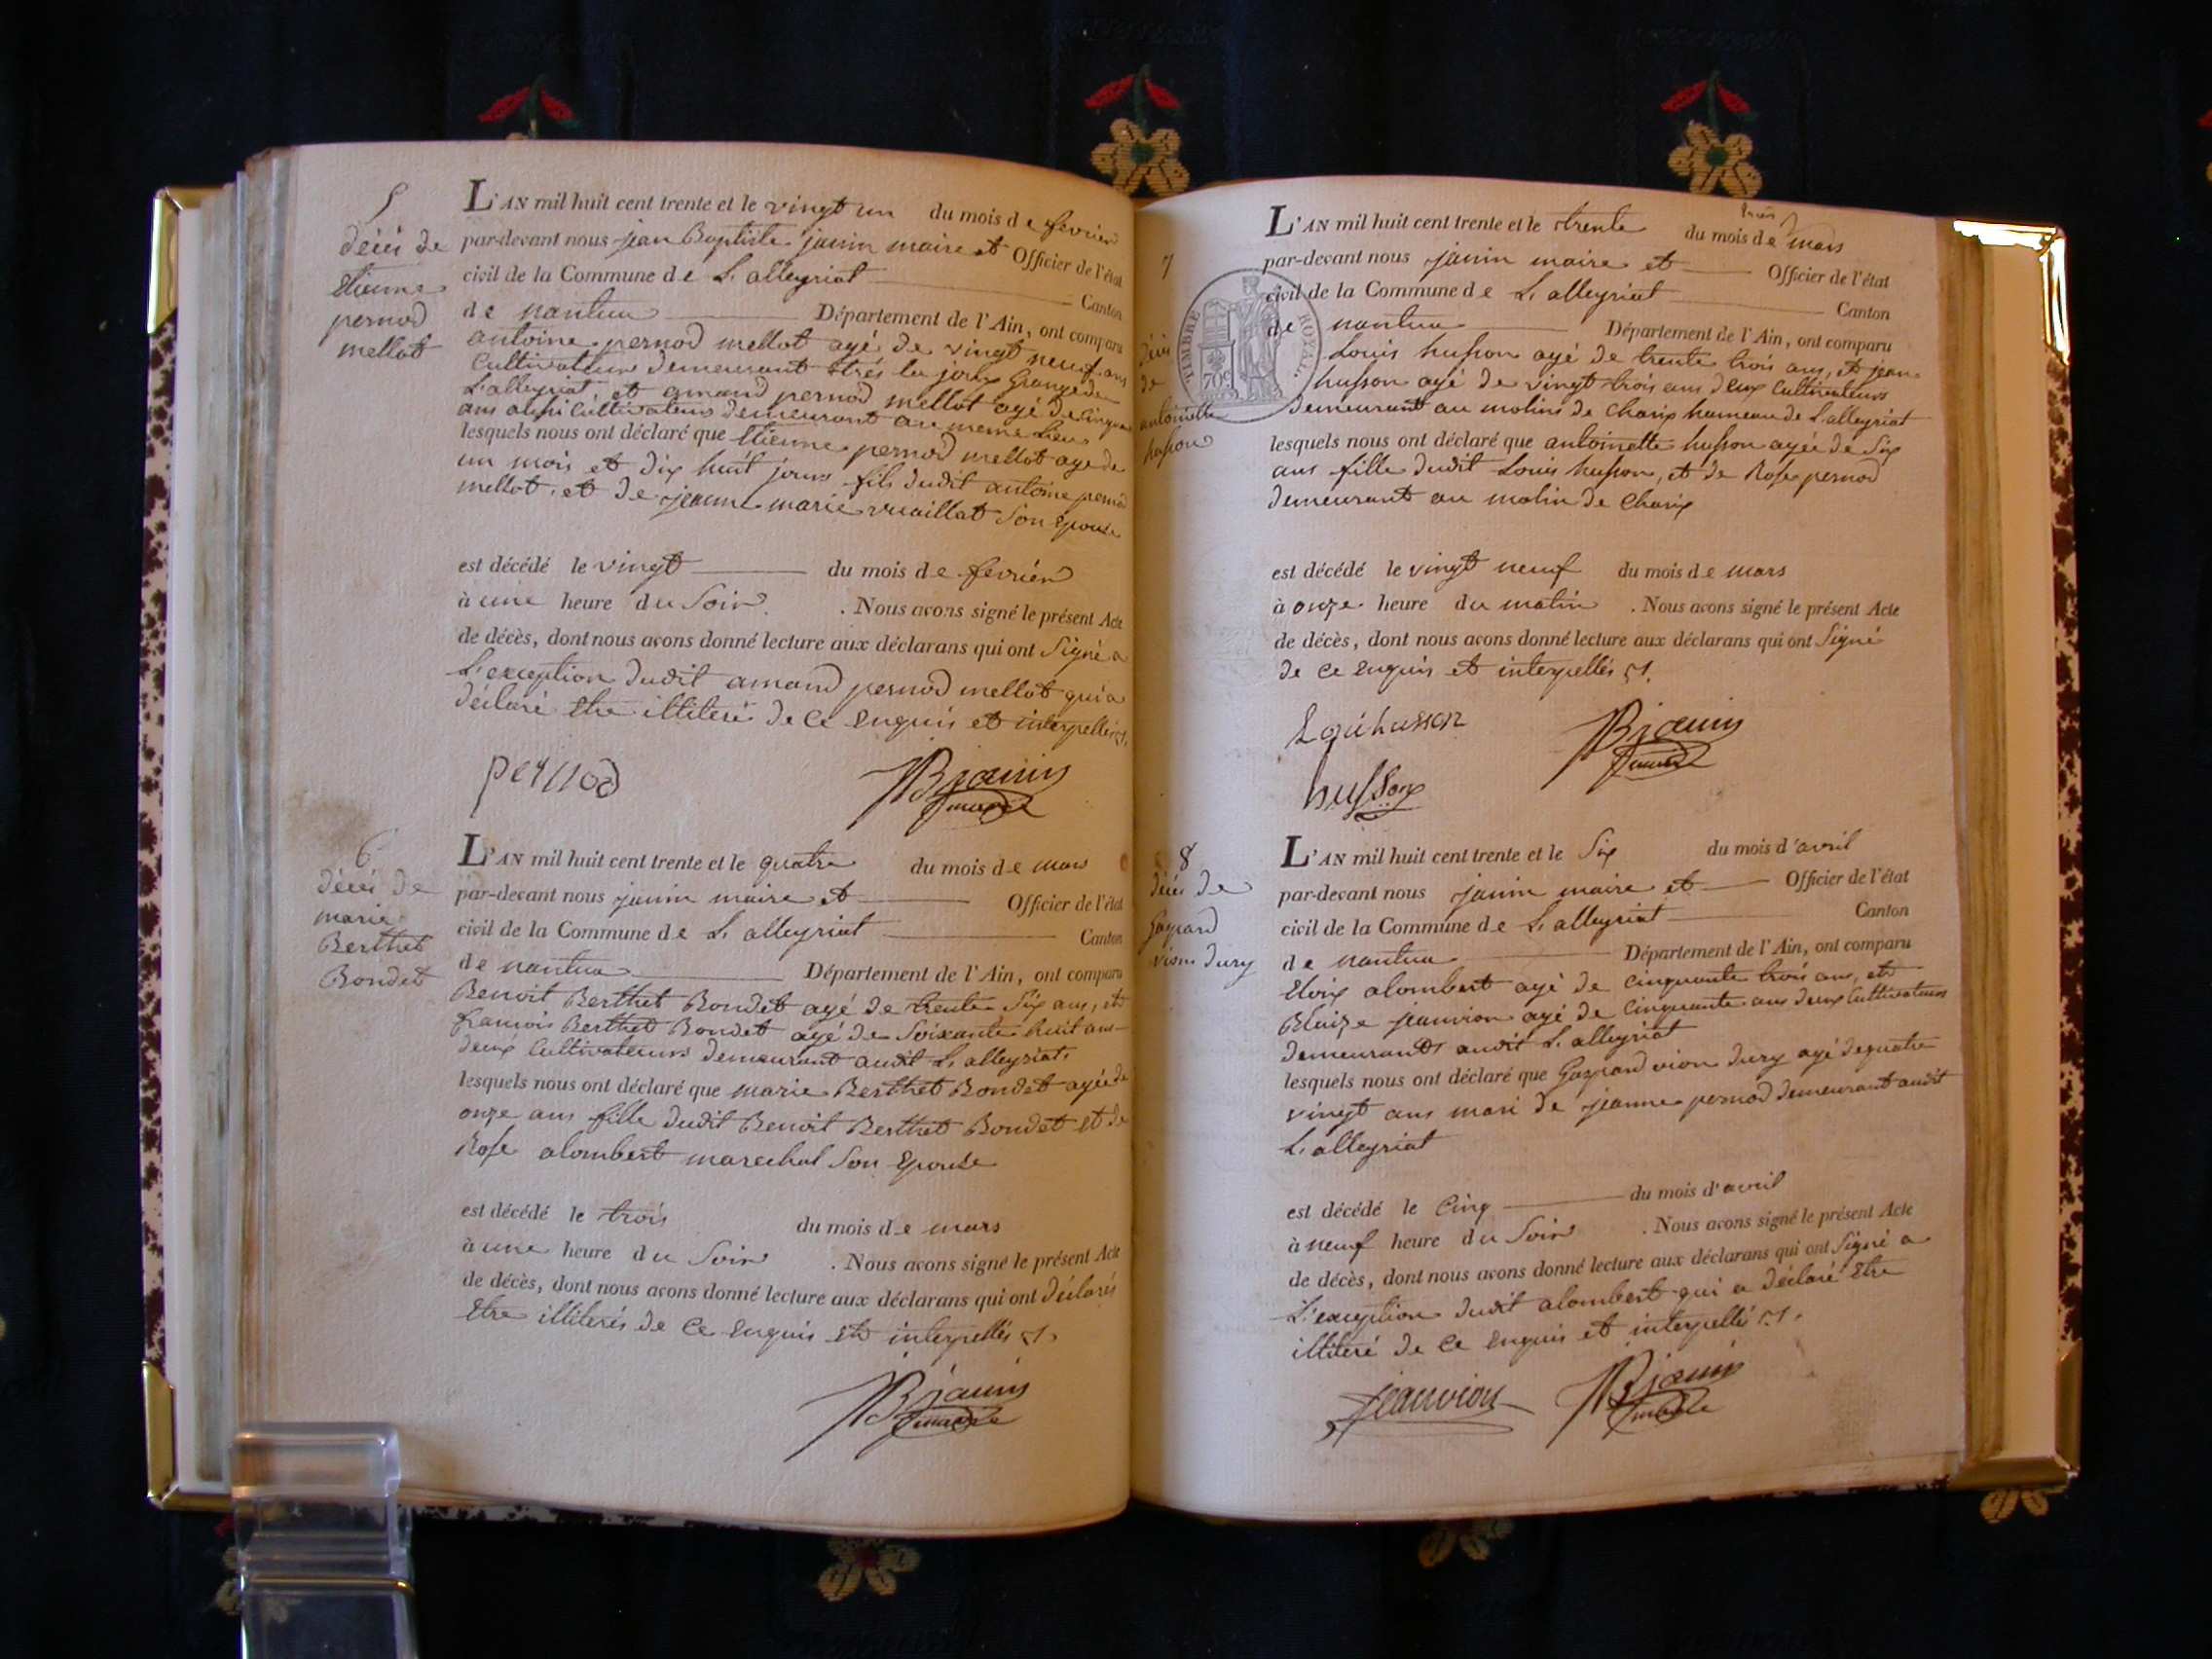 5
décès de
Etienne
pernod
mellot
L'AN mil huit cent trente et le vingt un du mois de fevrier
par-devant nous jean Baptiste janin maire et Officier de l'état
civil de la Commune de L'alleyriat Canton
de nantua Département de l'Ain, ont comparu
antoine pernod mellot agé de vingt neuf ans
Cultivateur demeurant grange de
L'alleyriat, et amand pernod mellot agé de
ans aussi Cultivateur demeurant au meme Lieu
lesquels nous ont déclaré que Etienne pernod mellot agé de
un mois et dix huit jours fils dudit antoine pernod
mellot, et de jeanne marie vuaillat Son Epouse
est décédé le vingt du mois de fevrier
à une heure du Soir . Nous avons signé le présent Acte
de décès, dont nous avons donné lecture aux déclarans qui ont Signé a
L'exception dudit amand pernod mellot qui a
déclaré Etre illiteré de Ce Enquis et interpellé
pernod
JB janin
maire
6
décès de
marie
Berthet
Bondet
L'AN mil huit cent trente et le quatre du mois de mars
par-devant nous janin maire et Officier de l'état
civil de la Commune de L'alleyriat Canton
de nantua Département de l'Ain, ont comparu
Benoit Berthet Bondet agé de trente Six ans, et
francois Berthet Bondet agé de Soixante huit ans
deux Cultivateurs demeurant audit L'alleyriat
lesquels nous ont déclaré que marie Berthet Bondet agée de
onze ans fille dudit Benoit Berthet Bondet et de
Rose alombert marechal Son Epouse
est décédé le trois du mois de mars
à une heure du Soir . Nous avons signé le présent Acte
de décès, dont nous avons donné lecture aux déclarans qui ont déclarés
Etre illiterés de Ce Enquis et interpellés
JB janin
maire
7
décès
de
antoinette
husson
TIMBRE ROYAL
70c
L'AN mil huit cent trente et le trente du mois de mars
par-devant nous janin maire et Officier de l'état
civil de la Commune de L'alleyriat Canton
de nantua Département de l'Ain, ont comparu
Louis husson agé de trente trois ans, et jean
husson agé de vingt trois ans deux Cultivateurs
demeurant au molins de Charix hameau de L'alleyriat
lesquels nous ont déclaré que antoinette husson agée de Six
ans fille dudit Louis husson, et de Rose pernod
demeurant au molin de Charix
est décédé le vingt neuf du mois de mars
à onze heure du matin . Nous avons signé le présent Acte
de décès, dont nous avons donné lecture aux déclarans qui ont Signé
de Ce Enquis et interpellés
Loui husson
JB janin
maire
husson
8
décès de
Gaspard
vion dury
L'AN mil huit cent trente et le Six du mois d'avril
par-devant nous janin maire et Officier de l'état
civil de la Commune de L'alleyriat Canton
de nantua Département de l'Ain, ont comparu
Eloix alombert agé de Cinquante trois ans, et
Blaize jeanvion agé de Cinquante ans deux Cultivateurs
demeurants audit L'alleyriat
lesquels nous ont déclaré que Gaspard vion dury agé de quatre
vingt ans mari de jeanne pernod demeurant audit
L'alleyriat
est décédé le Cinq du mois d'avril
à neuf heure du Soir . Nous avons signé le présent Acte
de décès, dont nous avons donné lecture aux déclarans qui ont Signé a
L'exception dudit alombert qui a déclaré Etre
illiteré de Ce Enquis et interpellé
jeanvion
JB janin
maire